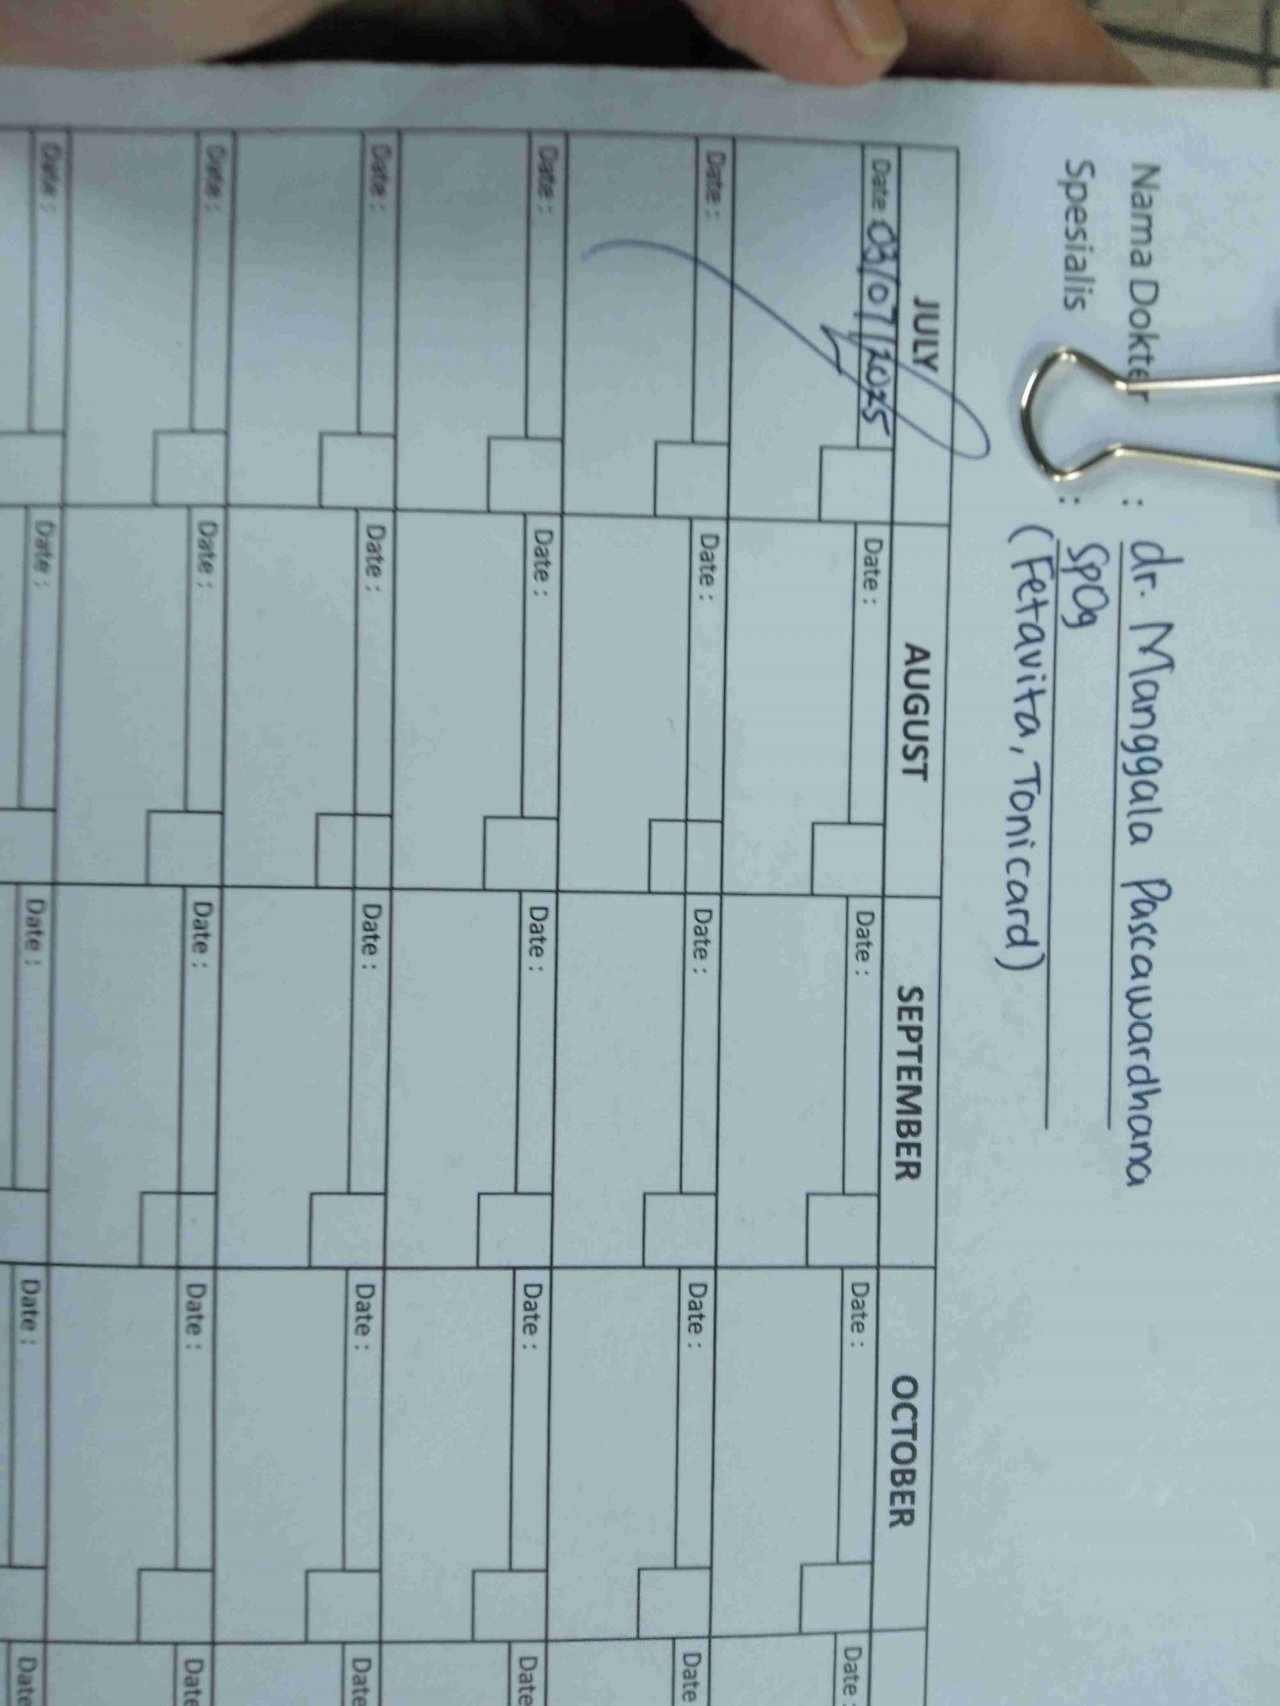 Nama Dokter : dr. Manggala Pascawardhana
Spesialis : SpOg
(Fetavita, Tonicard)
JULY AUGUST SEPTEMBER OCTOBER
Date : 03/07/2025 Date : Date : Date : Date :
Date : Date : Date : Date : Date
Date : Date : Date : Date : Date
Date : Date : Date : Date : Date
Date : Date : Date : Date : Date
Date : Date : Date : Date : Date